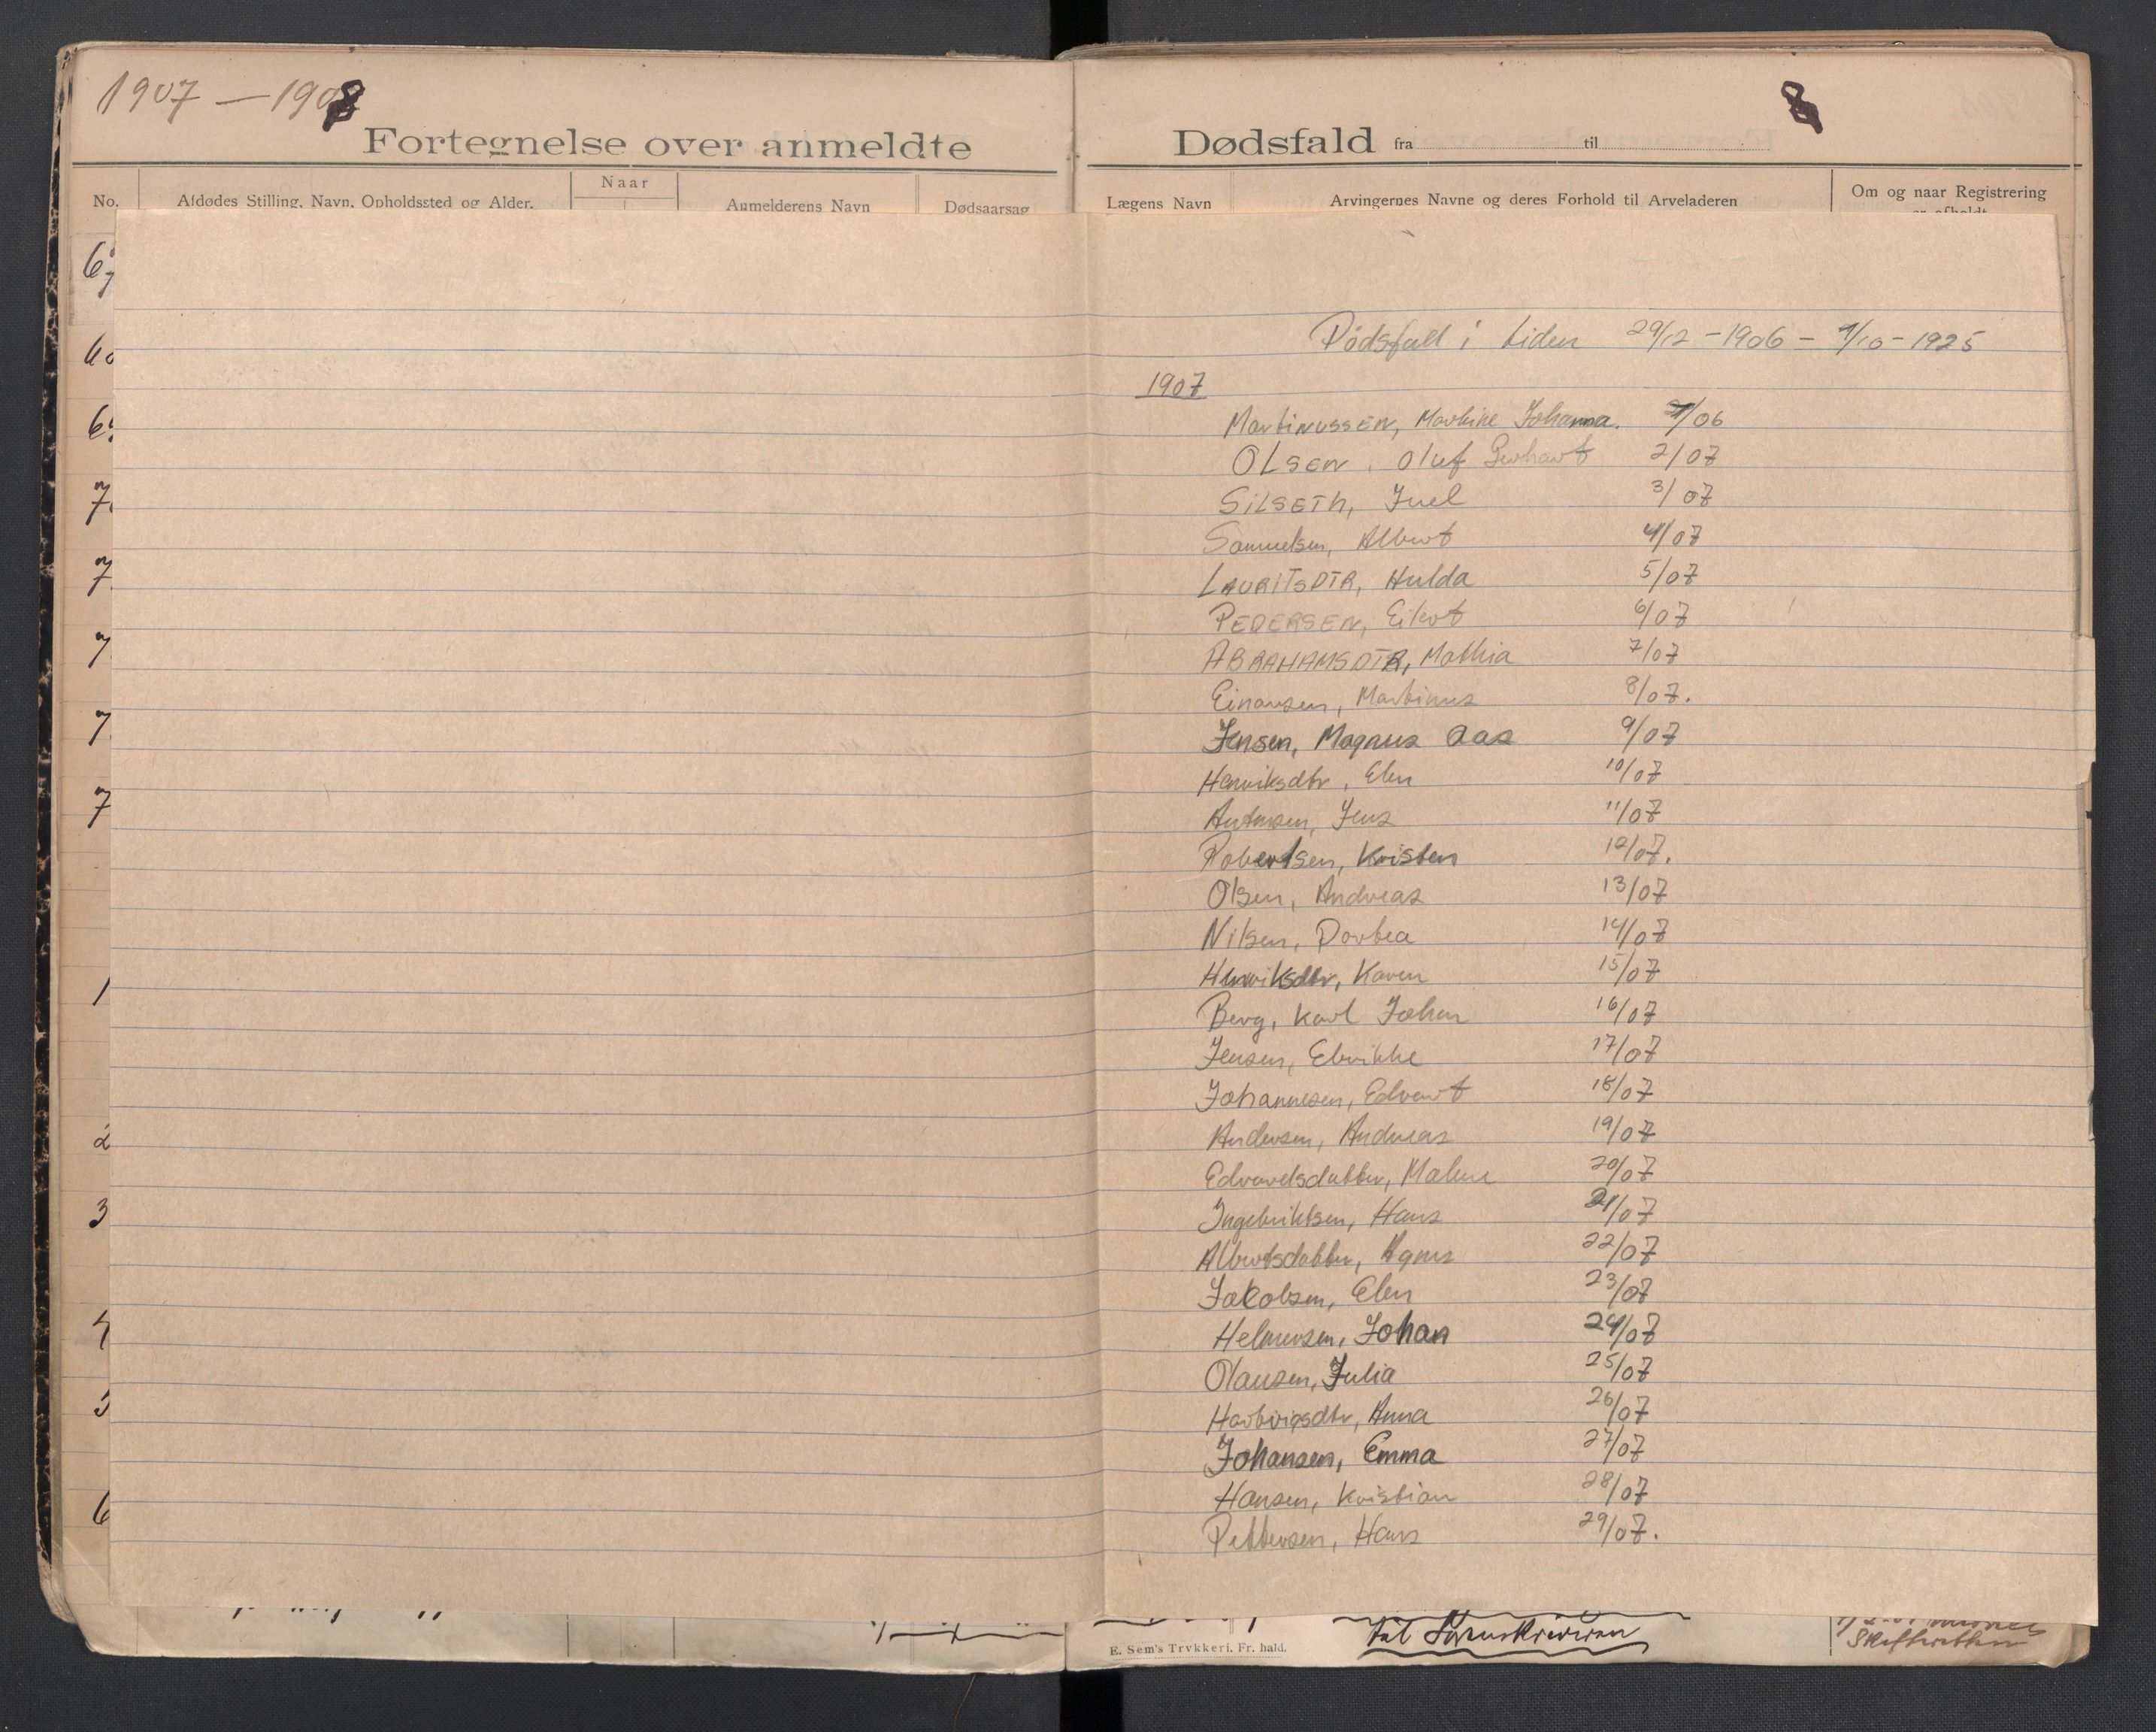 1907 — 1908
8
Fortegnelse over anmeldte Dødsfald fra til
No. Afdødes Stilling, Navn, Opholdssted og Alder. Naar Anmelderens Navn Dødsaarsag Lægens Navn Arvingernes Navne og deres Forhold til Arveladeren Om og naar Registrering
er afholdt
Dødsfall i Liden 29/12 - 1906 - 9/10 - 1925
1907
Martinussen, Martine Johanna. /06
OLSEN, Oluf Gerhart 2/07
SILSETH, Juel 3/07
Samuelsen, Albert 4/07
LAURITSDTR, Hulda 5/07
PEDERSEN, Eilert 6/07
ABRAHAMSDTR, Mathia 7/07
Einarsen, Martinus 8/07.
Jensen, Magnus Aas 9/07
Henriksdtr, Elen 10/07
Antonsen, Jens 11/07
Robertsen, Kristen 12/07.
Olsen, Andreas 13/07
Nilsen, Dortea 14/07
Henriksdtr, Karen 15/07
Berg, Karl Johan 16/07
Jensen, Elvikke 17/07
Johannesen, Edvart 18/07
Andersen, Andreas 19/07
Edvardsdatter, Malene 20/07
Ingebriktsen, Hans 21/07
Albertsdatter, Agnes 22/07
Jakobsen, Elen 23/07
Helmersen, Johan 24/07
Olausen, Julia 25/07
Hartvigsdtr, Anna 26/07
Johansen, Emma 27/07
Hansen, Kristian 28/07
Pettersen, Hans 29/07.
1
2
3
4
5
6
E. Sem's Trykkeri, Fr. hald.